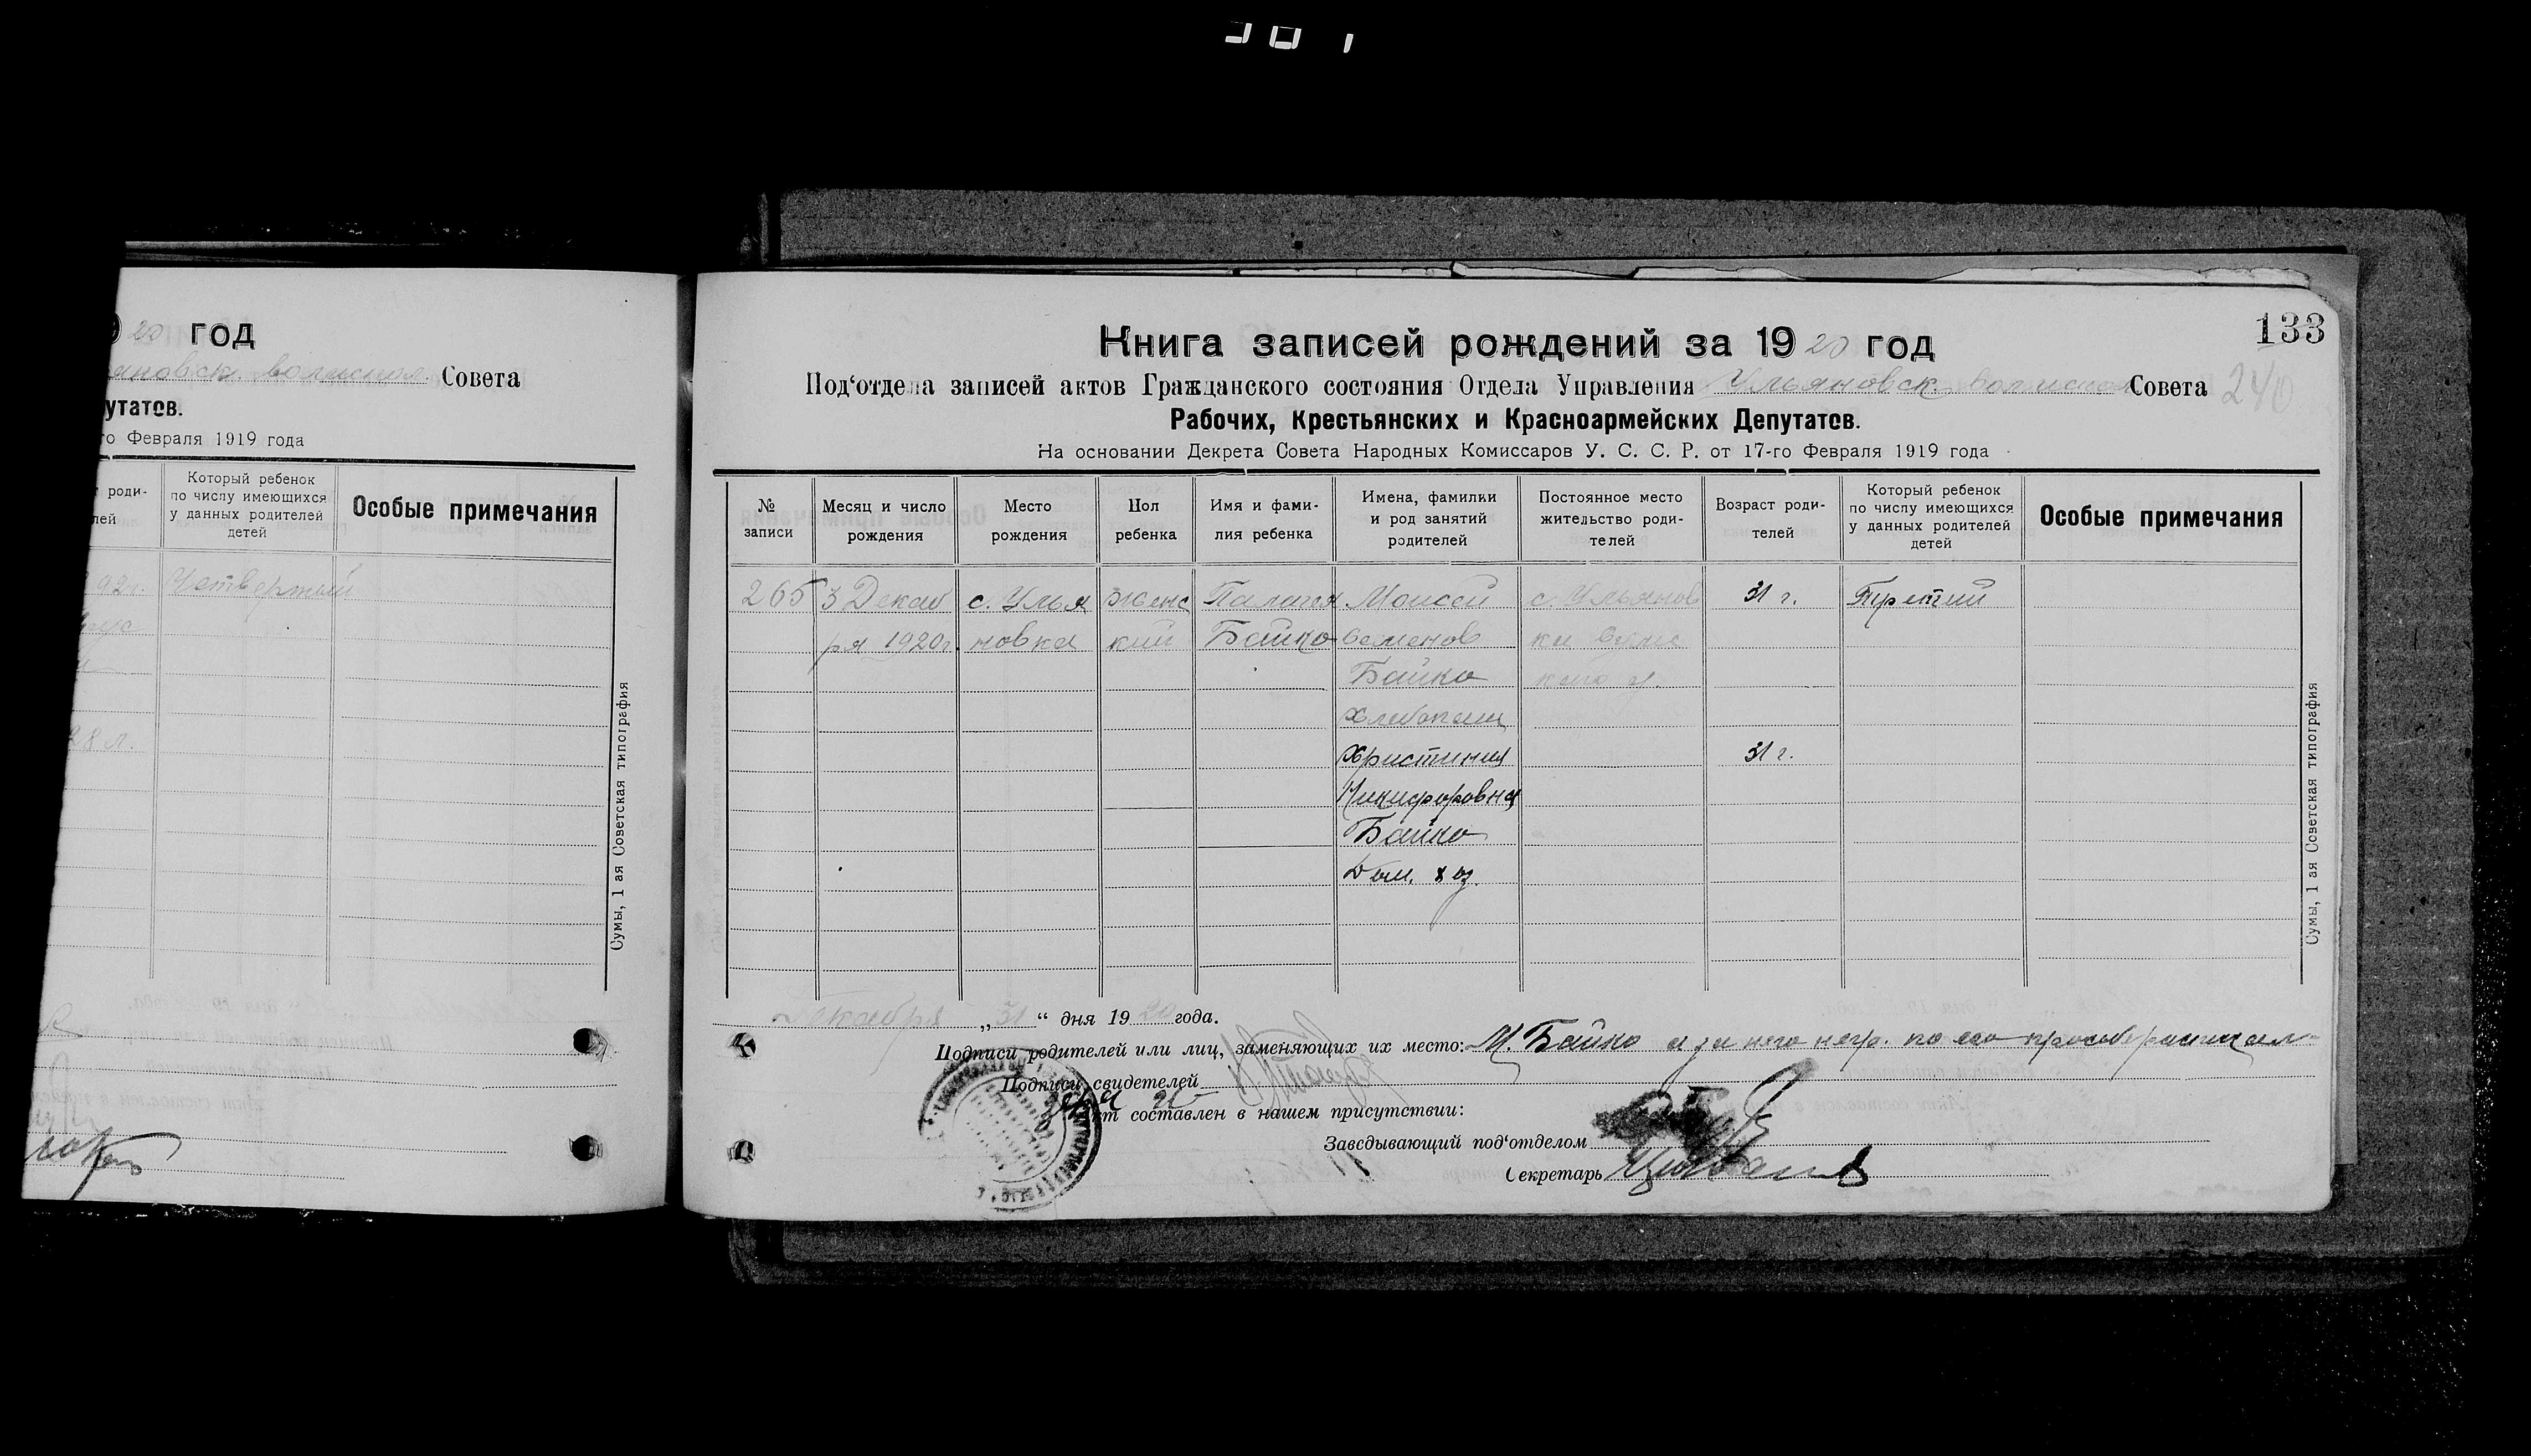 20 год
яновск. волиспол. Совета
утатов.
го Февраля 1919 года
роди-
лей
Который ребенок
по числу имеющихся
у данных родителей
детей
Особые примечания
92г. Четвертый
28 л.
Сумы, 1 ая Советская типография
133
Книга записей рождений за 1920 год
Под‘отдела записей актов Гражданского состояния Отдела Управления Ульяновск. волиспол. Совета 240
Рабочих, Крестьянских и Красноармейских Депутатов.
На основании Декрета Совета Народных Комиссаров У. С. С. Р. от 17-го Февраля 1919 года
№
записи
Месяц и число
рождения
Место
рождения
Пол
ребенка
Имя и фами-
лия ребенка
Имена, фамилии
и род занятий
родителей
Постоянное место
жительство роди-
телей
Возраст роди-
телей
Который ребенок
по числу имеющихся
у данных родителей
детей
Особые примечания
265 3 Декаб с. Улья женс Палагея Моисей с. Ульянов 31 г. Третий
ря 1920г. новка кий Байко Семенов ки Сумс
Байко кого у.
Хлебопаш
Христиния 31 г.
Никифоровна
Байко
Дом. хоз.
Сумы, 1 ая Советская типография
Декабря „31“ дня 1920 года.
Подписи родителей или лиц, заменяющих их место: М. Байко а за него негр. по его прозьбе расписал-
Подписи свидетелей
Акт составлен в нашем присутствии:
Заведывающий под‘отделом
Секретарь